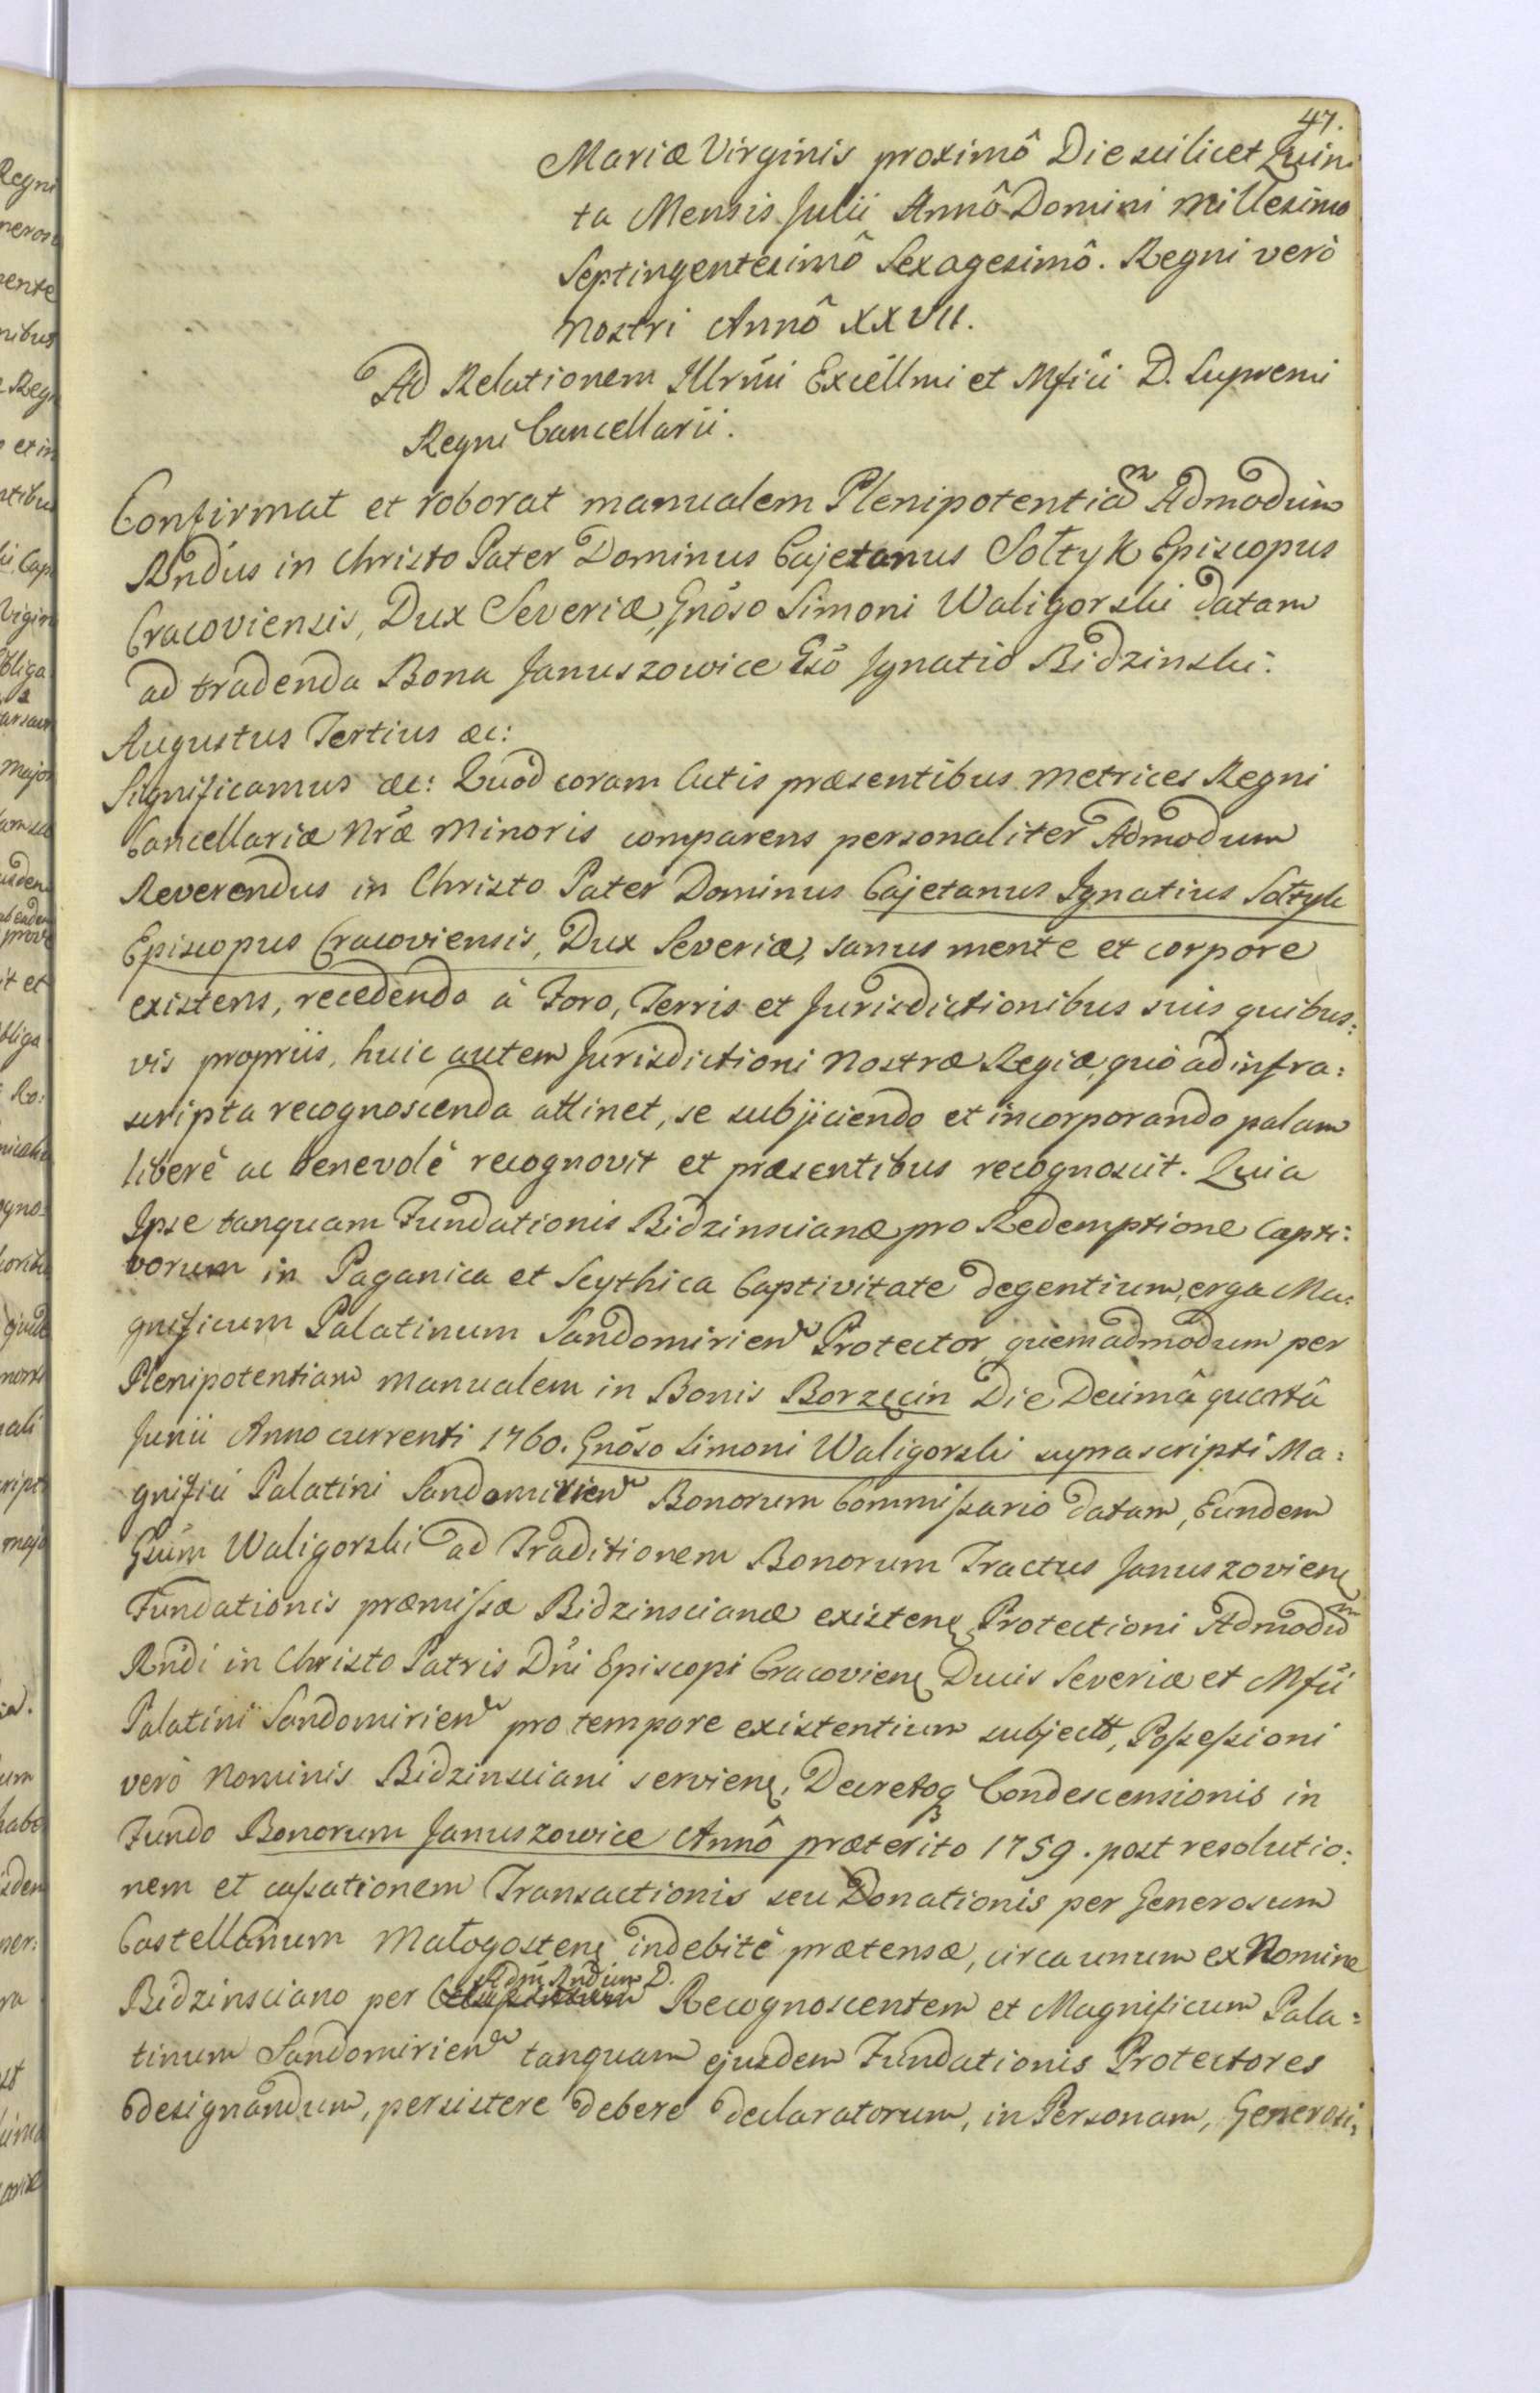 47.
Mariæ Virginis proximô Die scilicet Quin:
ta Mensis Julii Annô Domini Millesimo
Septingentesimô Sexagesimô. Regni verò
Nostri Annô XXVII.
Ad Relationem Illrmi Excellmi et Mfici D. Supremi
Regni Cancellarii.
Confirmat et roborat manualem Plenipotentiam Admodùm
Rndus in Christo Pater Dominus Cajetanus Sołtyk Episcopus
Cracoviensis, Dux Severiæ, Gnoso Simoni Waligorski datam
ad tradenda Bona Januszowice Gso Ignatio Bidzinski.
Augustus Tertius æc:
Significamus æc: Quod coram Actis præsentibus Metrices Regni
Cancellariæ Nræ Minoris comparens personaliter Admodum
Reverendus in Christo Pater Dominus Cajetanus Ignatius Sołtyk
Episcopus Cracoviensis, Dux Severiæ, sanus mente et corpore
existens, recedendo à Foro, Terris et Jurisdictionibus suis quibus:
vis propriis, huic autem Jurisdictioni Nostræ Regiæ, quò ad infra:
scripta recognoscenda attinet, se subjiciendo et incorporando palam
liberè ac benevolè recognovit et præsentibus recognoscit. Quia
Ipse tanquam Fundationis Bidzinscianæ pro Redemptione Capti:
vorum in Paganica et Scythica Captivitate degentium, erga Ma:
gnificum Palatinum Sandomirien Protector, quemadmodum per
Plenipotentiam manualem in Bonis Borzęcin Die Decimâ quartâ
Junii Anno currenti 1760. Gnoso Simoni Waligorski suprascripti Ma:
gnifici Palatini Sandomirien Bonorum Commissario datam, Eundem
Gsum Waligorski ad Traditionem Bonorum Tractus Januszovien
Fundationis præmissæ Bidzinscianæ existen Protectioni Admodum
Rndi in Christo Patris Dni Episcopi Cracovien Ducis Severiæ et Mfci
Palatini Sandomirien pro tempore existentium subject, Possessioni
verò Nominis Bidzinsciani servien, Decretoq Condescensionis in
Fundo Bonorum Januszowice Annô præterito 1759. post resolutio:
nem et cassationem Transactionis seu Donationis per Generosum
Castellanum Małogosten indebitè prætensæ, circa unum ex Nomine
Bidzinsciano per Adm Rndum D. Recognoscentem et Magnificum Pala:
tinum Sandomirien tanquam ejusdem Fundationis Protectores
designandum, persistere debere declaratorum, in Personam, Generosi,